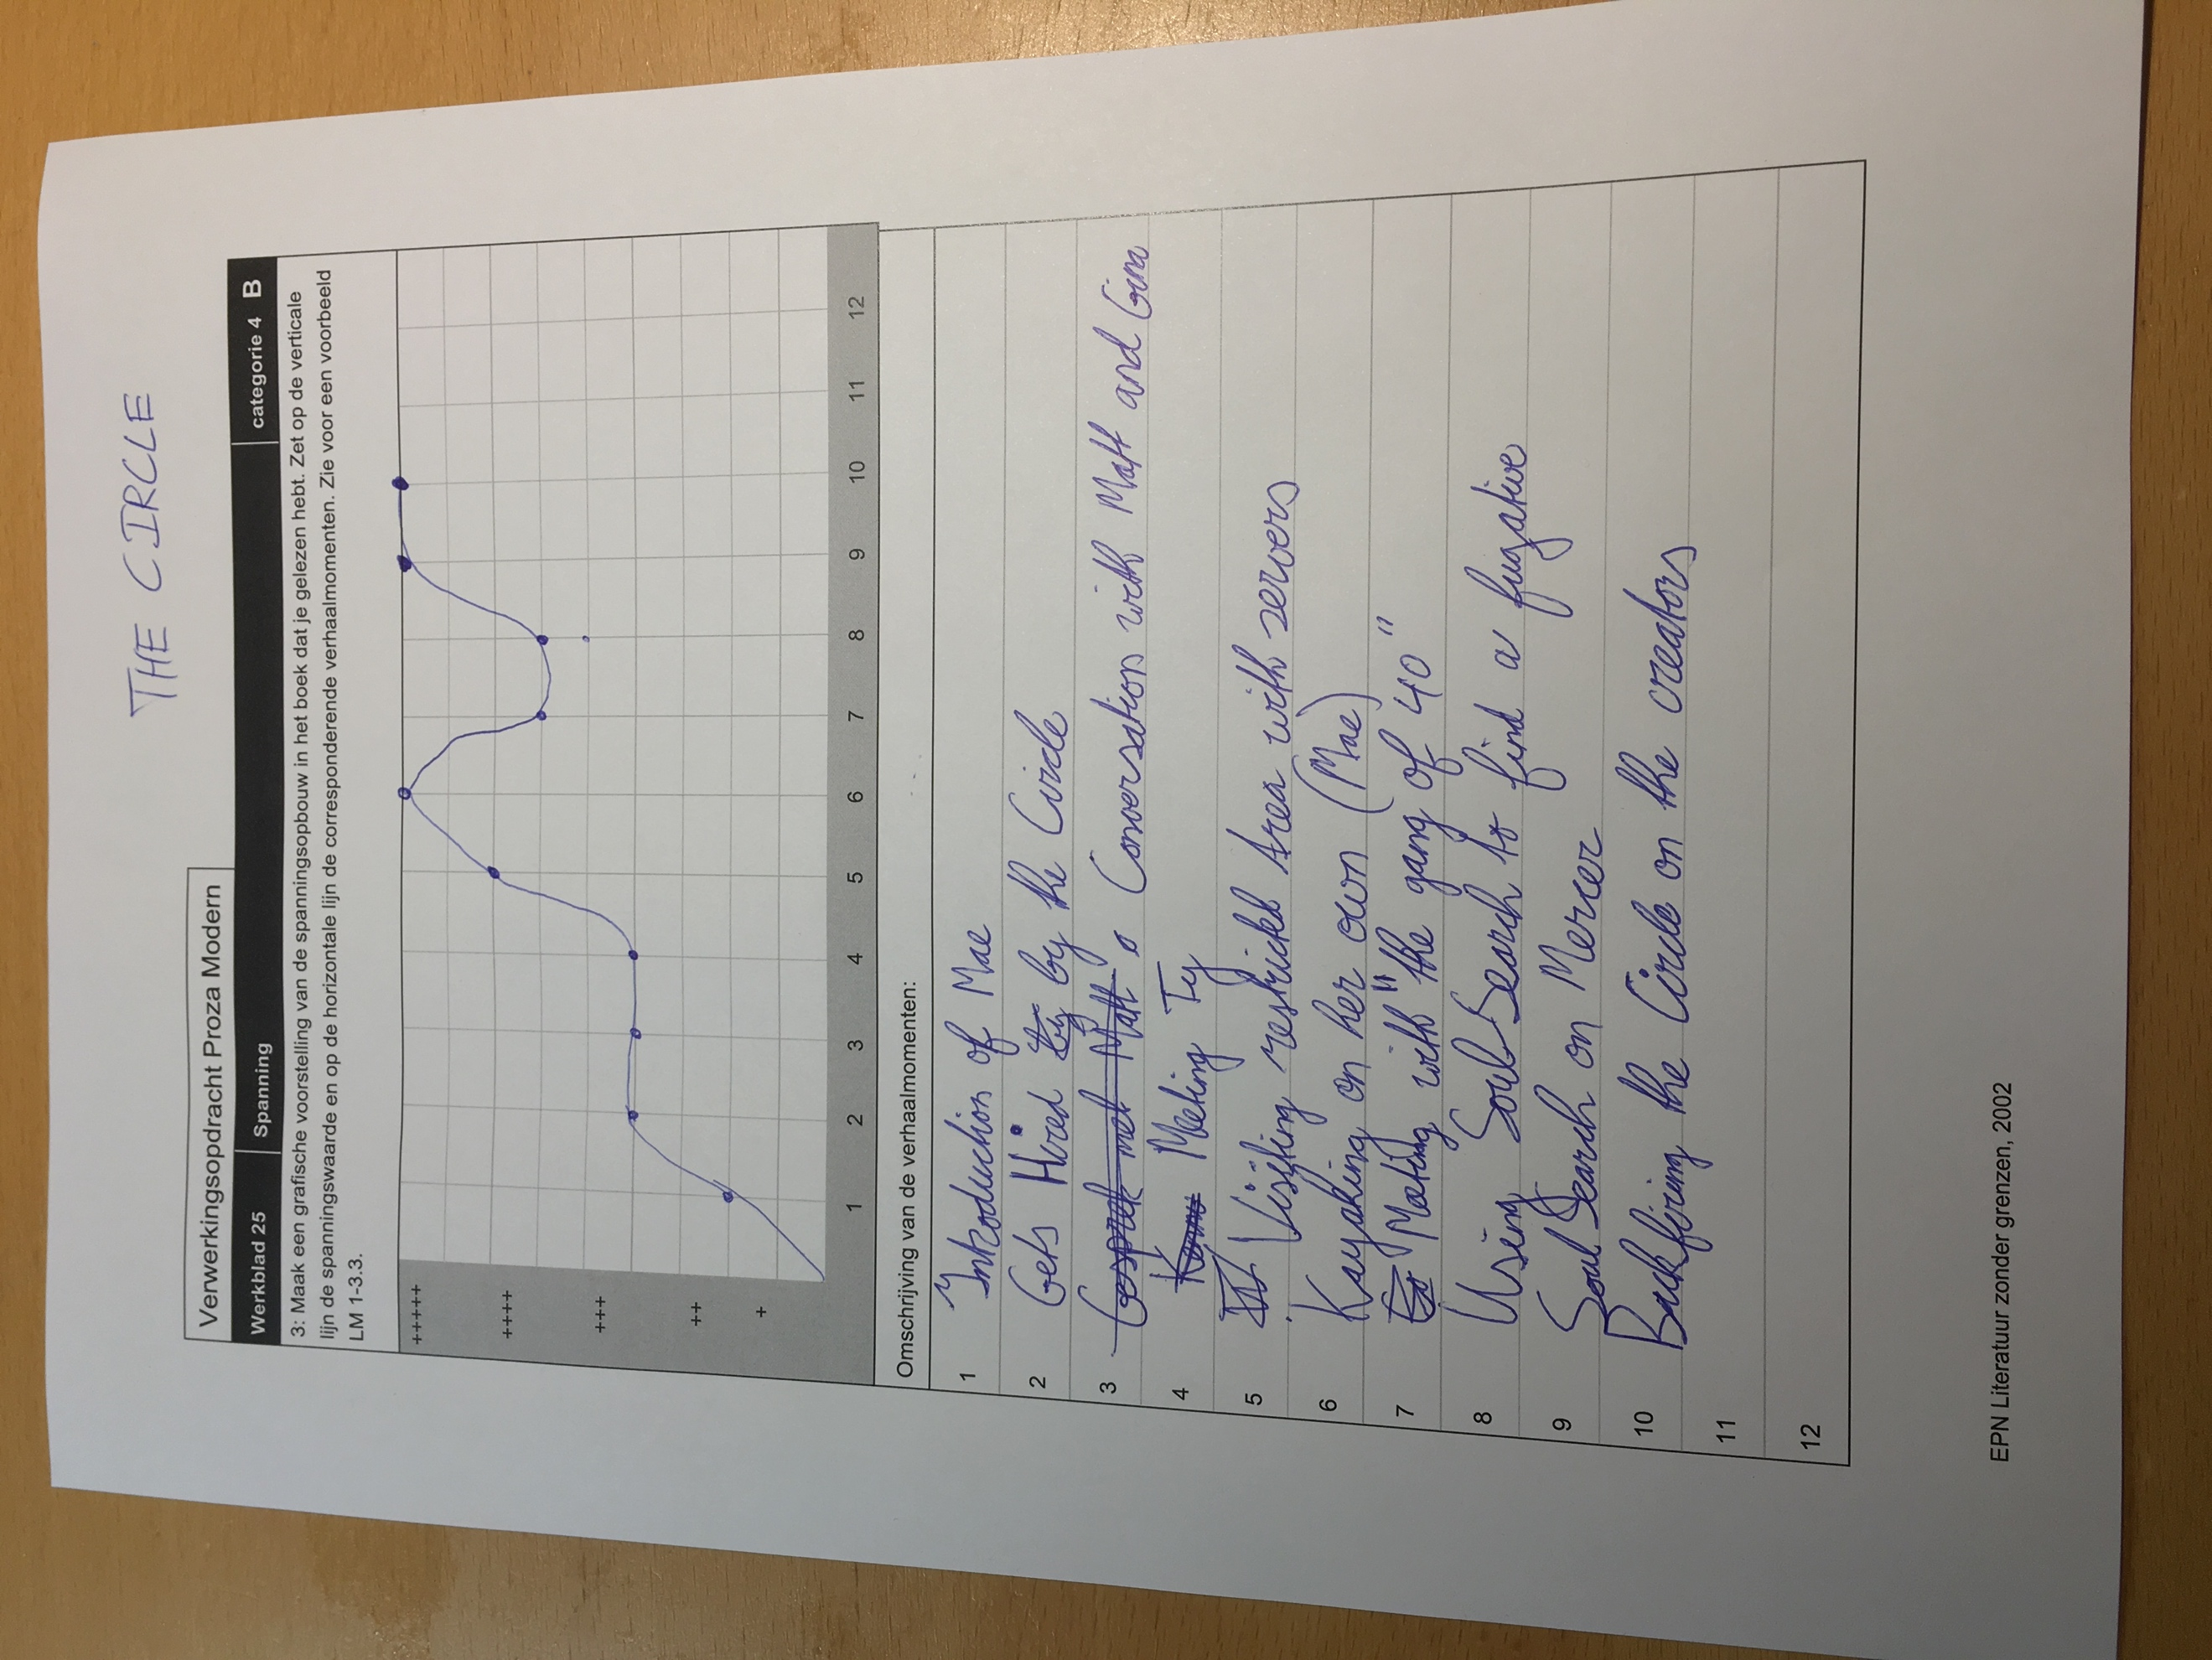 THE CIRCLE
Verwerkingsopdracht Proza Modern
Werkblad 25 Spanning categorie 4 B
3: Maak een grafische voorstelling van de spanningsopbouw in het boek dat je gelezen hebt. Zet op de verticale
lijn de spanningswaarde en op de horizontale lijn de corresponderende verhaalmomenten. Zie voor een voorbeeld
LM 1-3.3.
+++++
++++
+++
++
+
1 2 3 4 5 6 7 8 9 10 11 12
Omschrijving van de verhaalmomenten:
1 Introduction of Mae
2 Gets Hired by by the Circle
3 Gesprek met Matt Conversation with Matt and Gina
4 Meeting Ty
5 Visiting restricted Area with servers
6 Kayaking on her own (Mae)
7 Meeting with "the gang of 40"
8 Using SoulSearch to find a fugative
9 SoulSearch on Mercer
10 Backfiring the Circle on the creators
11
12
EPN Literatuur zonder grenzen, 2002